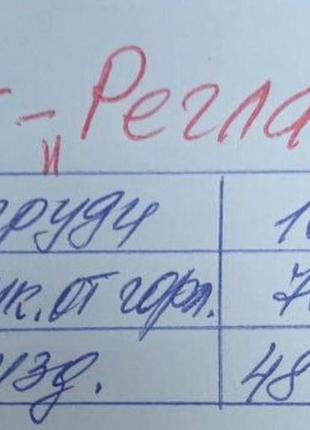 - Регла
и
груди 1
ик. от горл. 7
изд. 48